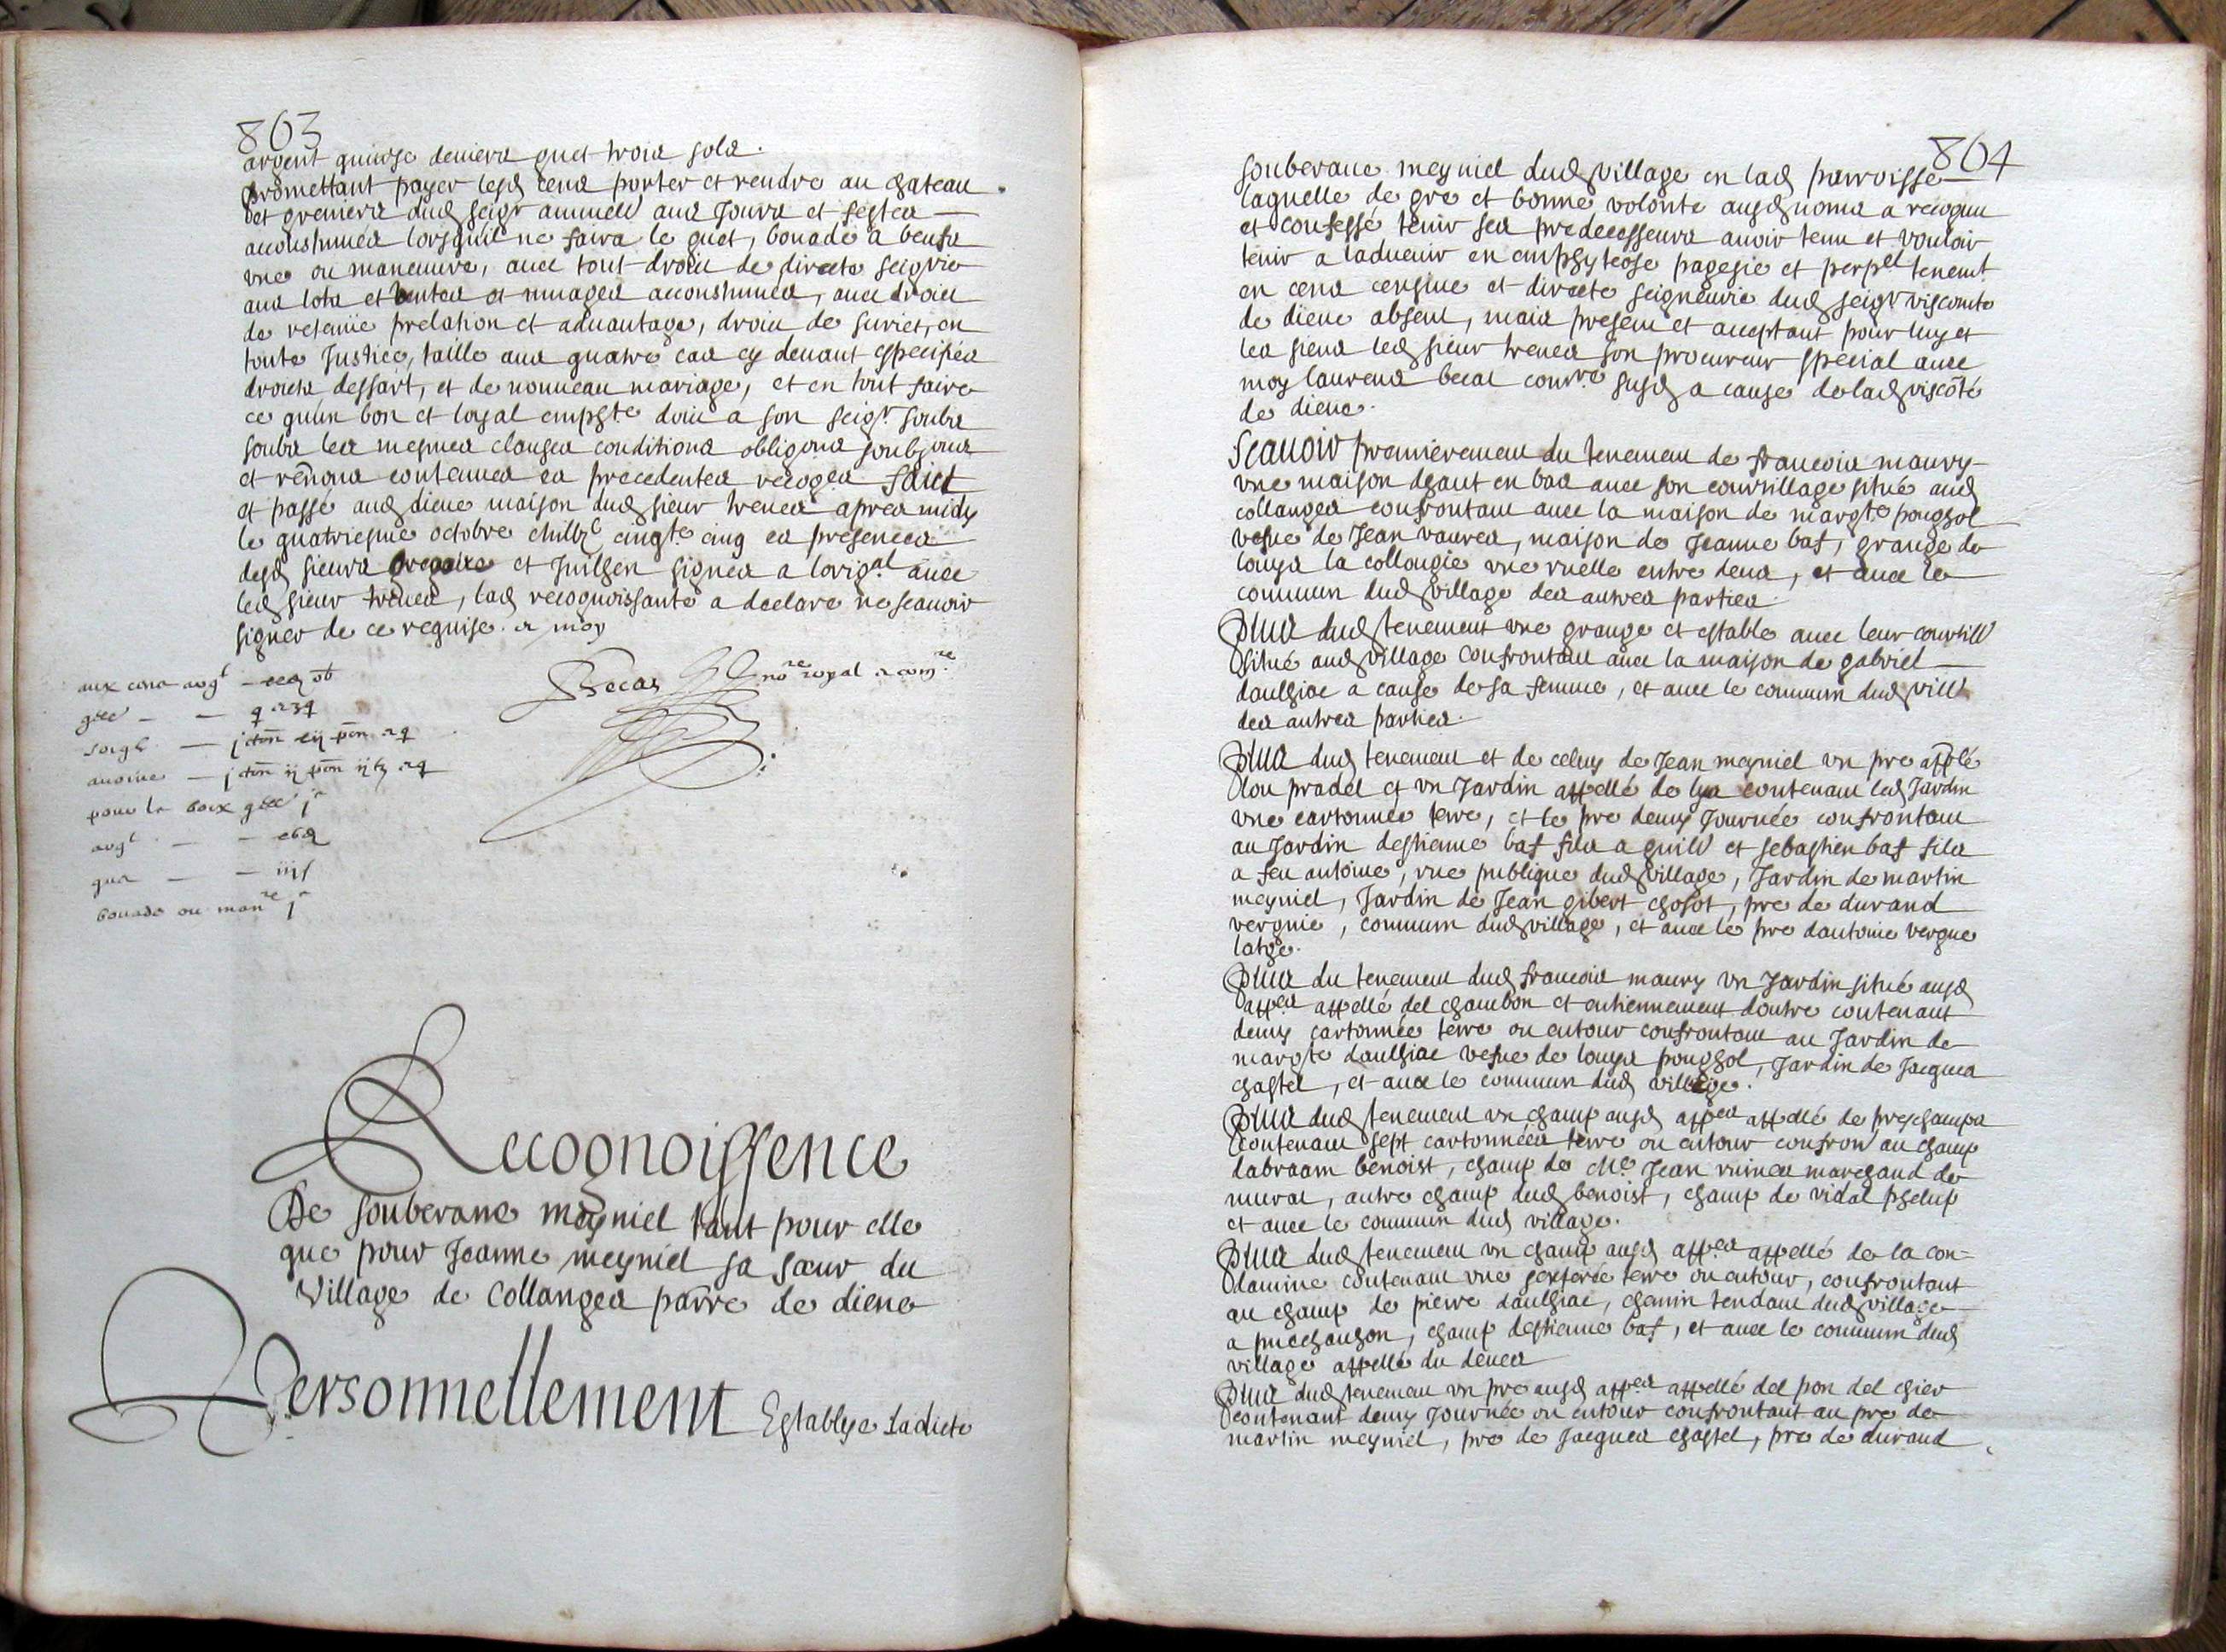 803
argent quinze deniers guet trois sols.
Promettant payer lesd cens porter et rendre au chateau
et greniers dud seigr annuell aux Jours et festes
accoustumes lorsquil ne faira le guet, bouade a beufs
une ou maneuvre, avec tout droit de directe seigrie
aux lots et ventes et muages accoustumes, avec droit
de retenüe prelation et advantage, droit de suriet, en
toute Justice, taille aux quatre cas cy devant especifies
droicts dessart, et de nouveau mariage, et en tout faire
ce quun bon et loyal emphte doit a son seigr soubs
soubs les mesmes clauses conditions obligons soubzons
et renõns contenues es precedentes recoges faict
et passé aud diene maison dud sieur trenes apres midy
le quatriesme octobre cinqte cinq es presences
desd sieurs et Juilhen signes a lorigal avec
led sieur trenes, lad recognoissante a declare ne scavoir
signer de ce requise. et moy
Becas nore royal et comre
aux cens argt
gtee
soigl
avoine
pour le boix gtee j
argt
gua — — iijs
bouade ou manre j
Recognoissence
De souberane meyniel tant pour elle
que pour Jeanne meyniel sa sœur du
Village de Collanges parre de diene
Personnellement Establye Ladicte
804
souberane meyniel dud village en lad parroisse
laquelle de gre et bonne volonte ausd noms a recogneu
et confessé tenir ses predecesseurs avoir tenu et vouloir
tenir a ladvenir en emphyteose pagesie et perpel tenemt
en cens censive et directe seigneurie dud seigr viscomte
de diene absent, mais present et acceptant pour luy et
les siens led sieur trenes son procureur special avec
moy laurens becat comre susd a cause de lad viscõté
de diene.
Scavoir premierement du tenement de francois maury
une maison dhaut en bas avec son courtillage situé aud
collanges confrontant avec la maison de margte poughol
vefve de Jean vaures, maison de Jeanne bas, grange de
louys la collongie une ruelle entre deux, et avec le
commun dud village des autres parties
Plus dud tenement une grange et estable avec leur courtill
situé aud village confrontant avec la maison de gabriel
daulhiac a cause de sa femme, et avec le commun dud vill
des autres parties.
Plus dud tenement et de celuy de Jean meyniel un pre applé
lou pradel et un Jardin appellé de lya contenant led Jardin
une cartonnée terre, et le pre demy Journée confrontant
au Jardin destienne bas fils a guill et sebastien bas fils
a feu antoine, rue publique dud village, Jardin de martin
meyniel, Jardin de Jean gibert chofot, pre de durand
vergnie, commun dud village, et avec le pre dantoine vergne
latge.
Plus du tenement dud francois maury un Jardin situé ausd
appes appellé del chambon et entiennement doutre contenant
demy cartonnée terre ou entour confrontant au Jardin de
margte daulhiac vefve de louys poughol, Jardin de Jacques
chastel, et avec le commun dud village.
Plus dud tenement un champ ausd appes appellé de preschamps
contenant sept cartonnées terre ou entour confront au champ
dabraam benoist, champ de Me Jean ruines marchand de
murat, autre champ dud benoist, champ de vidal phelip
et avec le commun dud village.
Plus dud tenement un champ ausd appes appellé de la con=
damine contenant une sexterée terre ou entour, confrontant
au champ de pierre daulhiac, chemin tendant dud village
a puechauzon, champ destienne bas, et avec le commun dud
village appellé du deves
Plus dud tenement un pre ausd appes appellé del pon del chier
contenant demy Journée ou entour confrontant au pre de
martin meyniel, pre de Jacques chastel, pre de durand